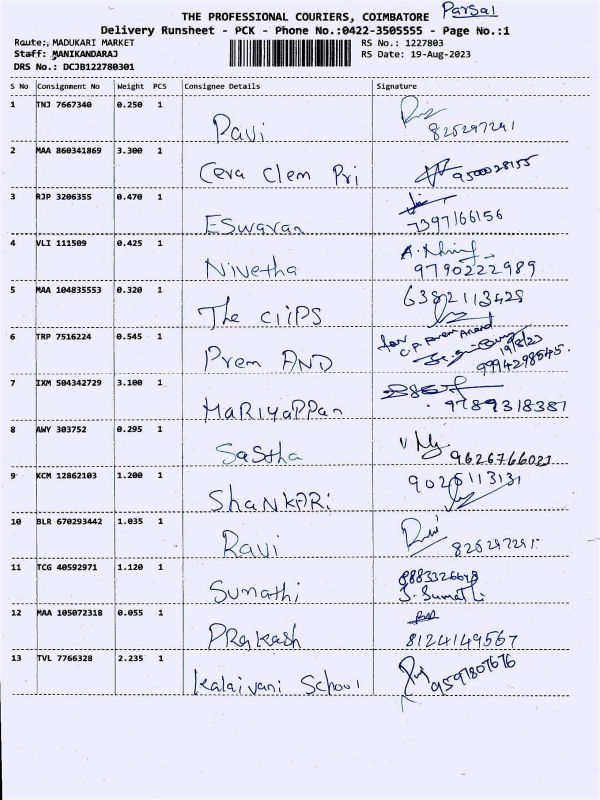 THE PROFESSIONAL COURIERS, COIMBATORE Parsal
Delivery Runsheet - PCK - Phone No.:0422-3505555 - Page No.:1
Route:, MADUKARI MARKET RS No.: 1227803
Staff: MANIKANDARAJ RS Date: 19-Aug-2023
DRS No.: DCJB122780301
S No Consignment No Weight PCS Consignee Details Signature
1 TNJ 7667340 0.250 1
Pavi 826297291
2 MAA 860341869 3.300 1
Cera Clem Pri 9500028155
3 RJP 3206355 0.470 1
Eswaran 7397166156
4 VLI 111509 0.425 1
Nivetha 9790222989
5 MAA 104835553 0.320 1 6382113428
The cliPS
6 TRP 7516224 0.545 1 for C.P. Prem Anand
Prem AND 19/8/23
9994298545.
7 IXM 504342729 3.100 1
MaRiyaPPan 9789318387
8 AWY 303752 0.295 1
Sastha 9626766023
9 KCM 12862103 1.200 1 9025113131
ShaNKARi
10 BLR 670293442 1.035 1
Ravi 826297291
11 TCG 40592971 1.120 1
Sumathi S. Sumathi
12 MAA 105072318 0.055 1
PRakash 8124149567
13 TVL 7766328 2.235 1
Kalaivani School 9597807676